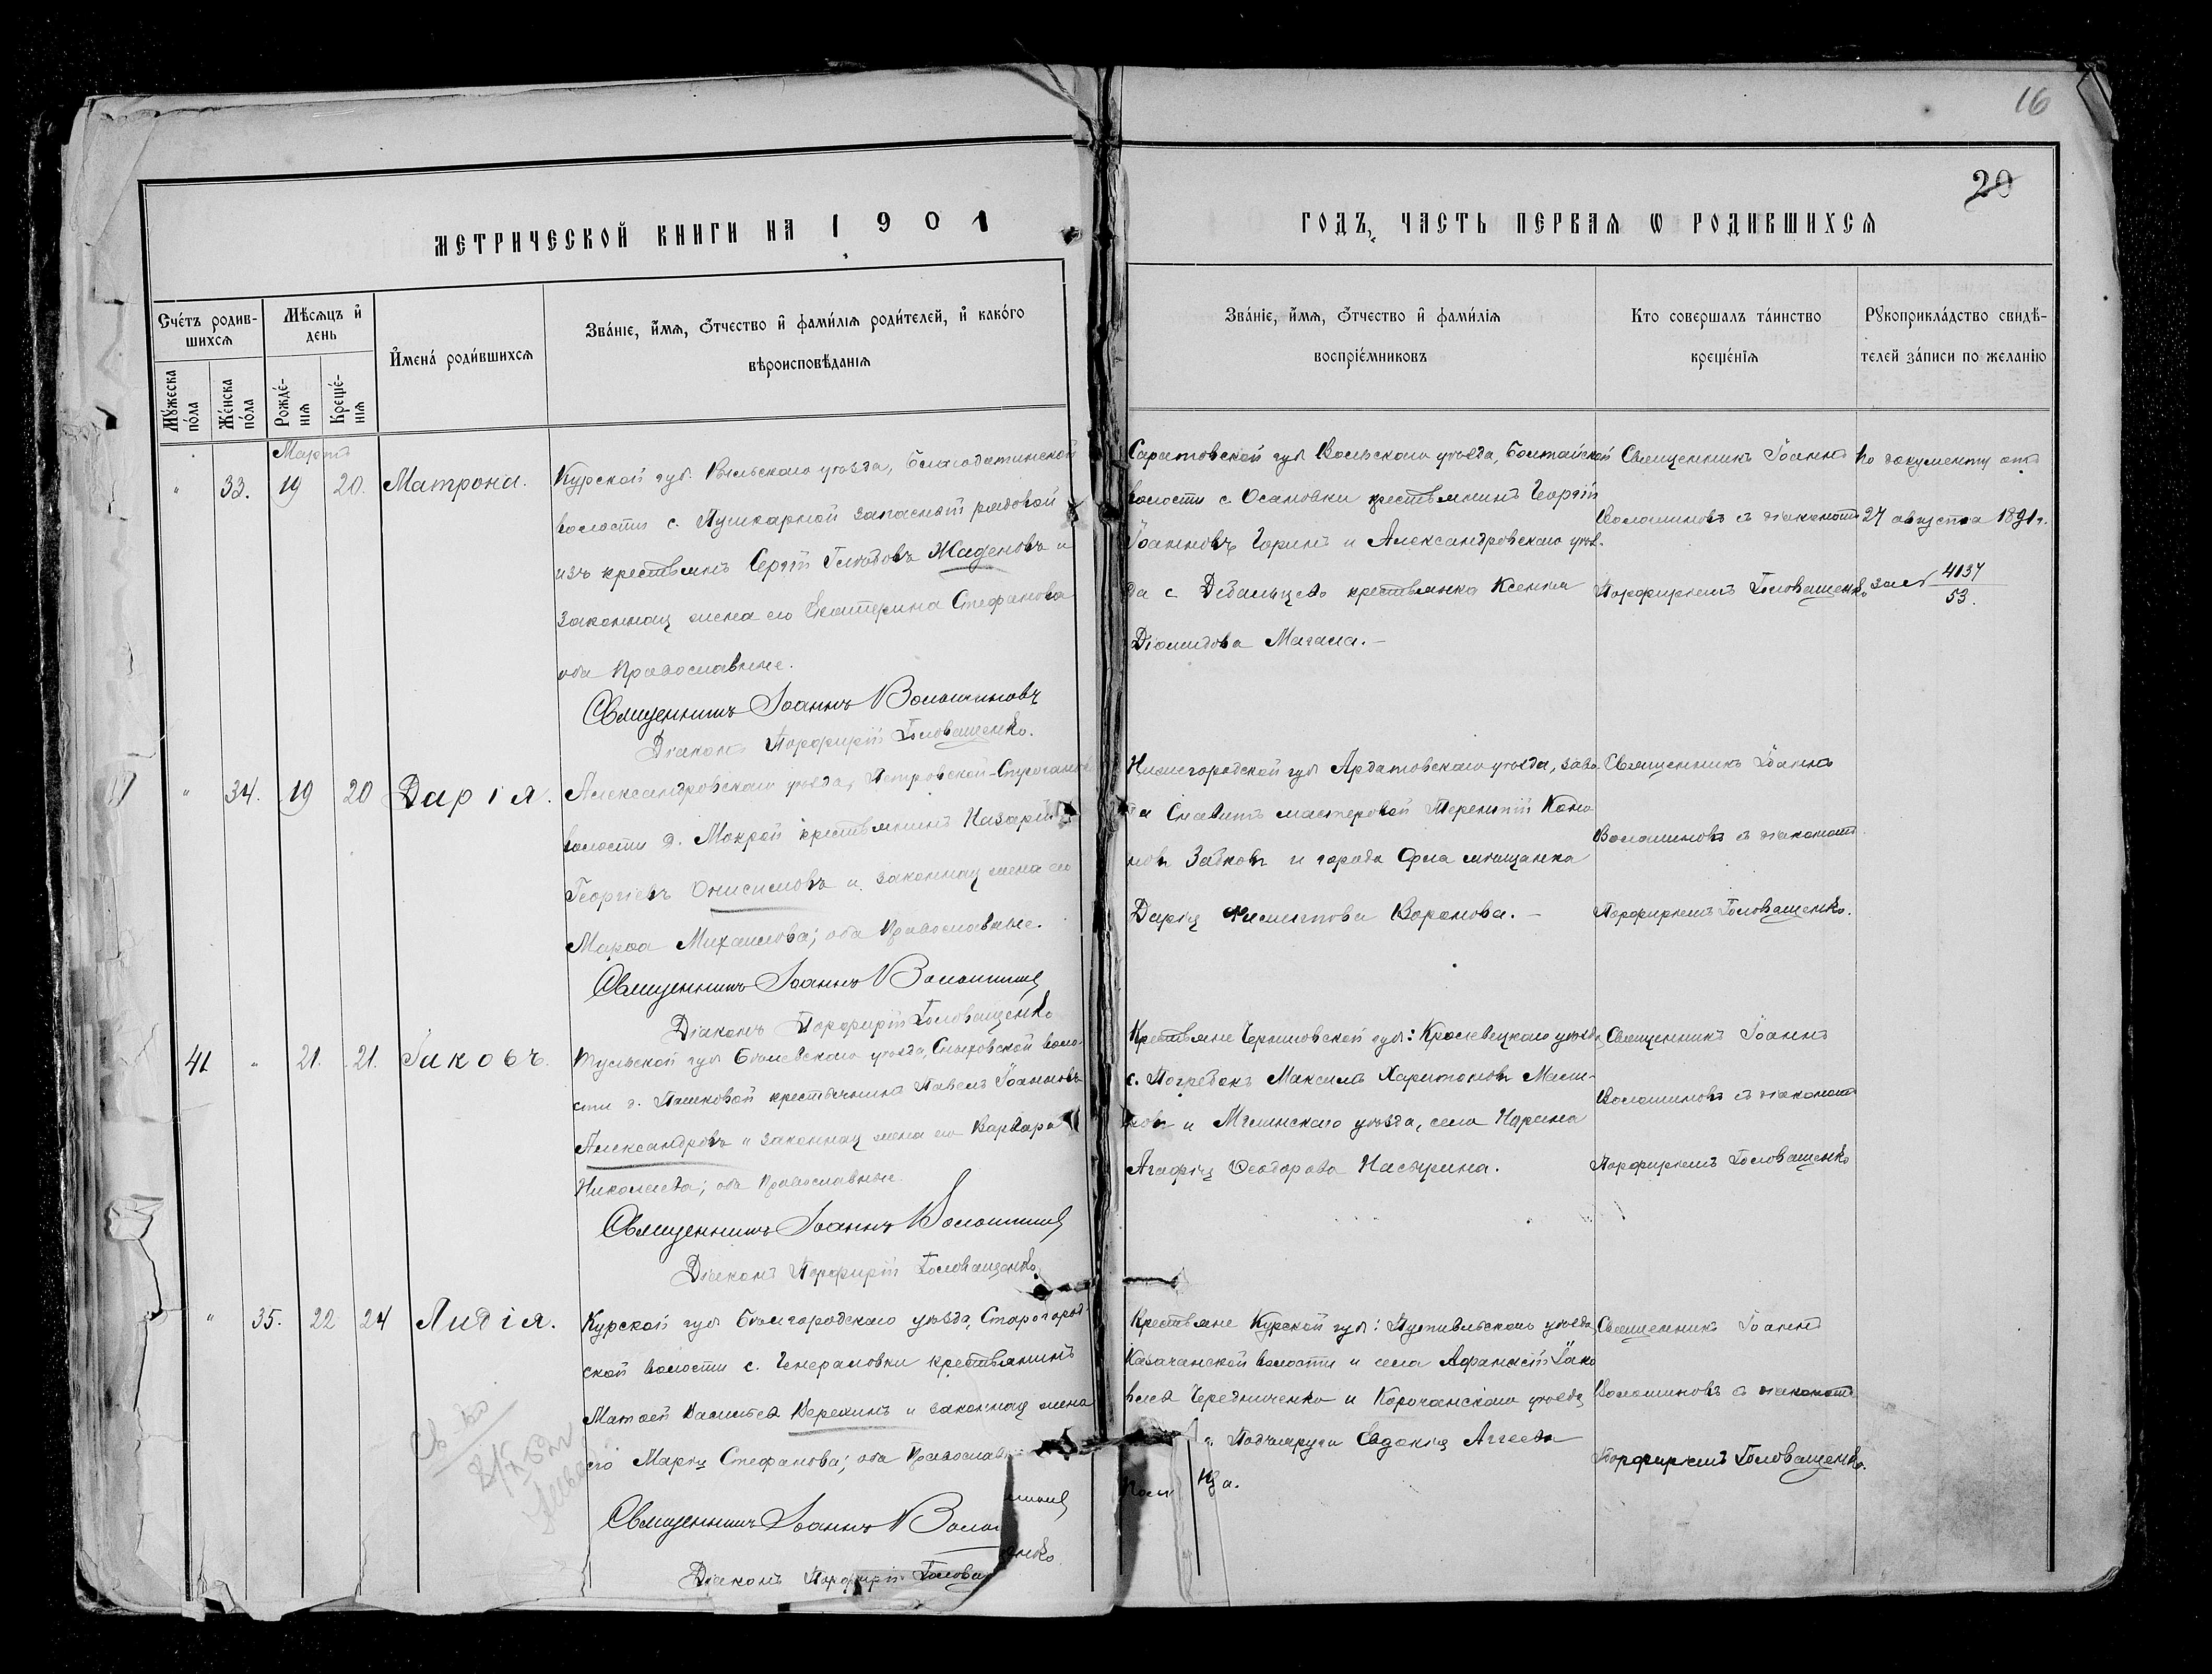 16
20
МЕТРИЧЕСКОЙ КНИГИ НА 1901
ГОДЪ, ЧАСТЬ ПЕРВАЯ Ѡ РОДИВШИХСЯ
Счетъ родив-
шихся
Мужеска
пола
Женска
пола
Мѣсяцъ и
день
Рожде-
нія
Креще-
нія
Имена родившихся
Званіе, имя, отчество и фамилія родителей, и какого
вѣроисповѣданія
Званіе, имя, отчество и фамилія
воспріемниковъ
Кто совершалъ таинство
крещенія
Рукоприкладство свидѣ-
телей записи по желанію
Мартъ
" 33. 19 20. Матрона.
Курской губ. Рыльскаго уѣзда, Благодатинской
волости с. Пушкарной запасный рядовой
изъ крестьянъ Сергій Глѣбовъ Жаденовъ и
законная жена его Екатерина Стефанова
оба Православные.
Священникъ Іоаннъ Волошиновъ
Діаконъ Порфирій Головащенко.
Саратовской губ Вольскаго уѣзда, Болтайской
волости с Осановки крестьянинъ Георгій
Іоанновъ Горинъ и Александровскаго уѣз-
да с Дебальцево крестьянка Ксенія
Діомидова Магала. –
Священникъ Іоаннъ
Волошиновъ съ діакономъ
Порфиріемъ Головащенко
По документу отъ
27 августа 1891 г.
за № 4137
53.
" 34. 19 20 Дарія.
Александровскаго уѣзда, Петровской-
волости д. Мокрой крестьянинъ Назарій
Георгіевъ Онисимовъ и законная жена его
Марѳа Михаилова; оба Православные.
Священникъ Іоаннъ Волошинов
Діаконъ Порфирій Головащенко
Нижегородской губ Ардатовскаго уѣзда, заво
да мастеровой Терентій Коно
новъ Забковъ и города Орла мѣщанка
Дарія Филиппова Воронова. –
Священникъ Іоаннъ
Волошиновъ съ діакономъ
Порфиріемъ Головащенко.
41 " 21. 21. Іаковъ.
Тульской губ Бѣлевскаго уѣзда, воло-
сти д. Пашковой крестьянинъ Павелъ Іоанновъ
Александровъ и законная жена его Варвара
Николаева; оба Православные
Священникъ Іоаннъ Волошинов
Діаконъ Порфирій Головащенко.
Крестьяне Черниговской губ: Кролевецкаго уѣзда,
с. Погребокъ Максимъ Харитоновъ Мали-
новъ и Мглинскаго уѣзда, села
Агафія Ѳеодорова
Священникъ Іоаннъ
Волошиновъ съ діакономъ
Порфиріемъ Головащенко
" 35. 22 24 Лидія.
Курской губ Бѣлгородскаго уѣзда, Старогород-
ской волости с. Генераловки крестьянинъ
Матѳей Васильевъ Верехинъ и законная жена
его Марія Стефанова; оба Православ
Священникъ Іоаннъ Воло
Діаконъ Порфирій Голова
енко.
Крестьяне Курской губ: Путивльскаго уѣзда,
Казачанской волости и села Афанасій Іако
влевъ Чередниченко и Корочанскаго уѣзда
Подъяруги Евдокія Аггеева
Священникъ Іоаннъ
Волошиновъ съ діакономъ
Порфиріемъ Головащенко.